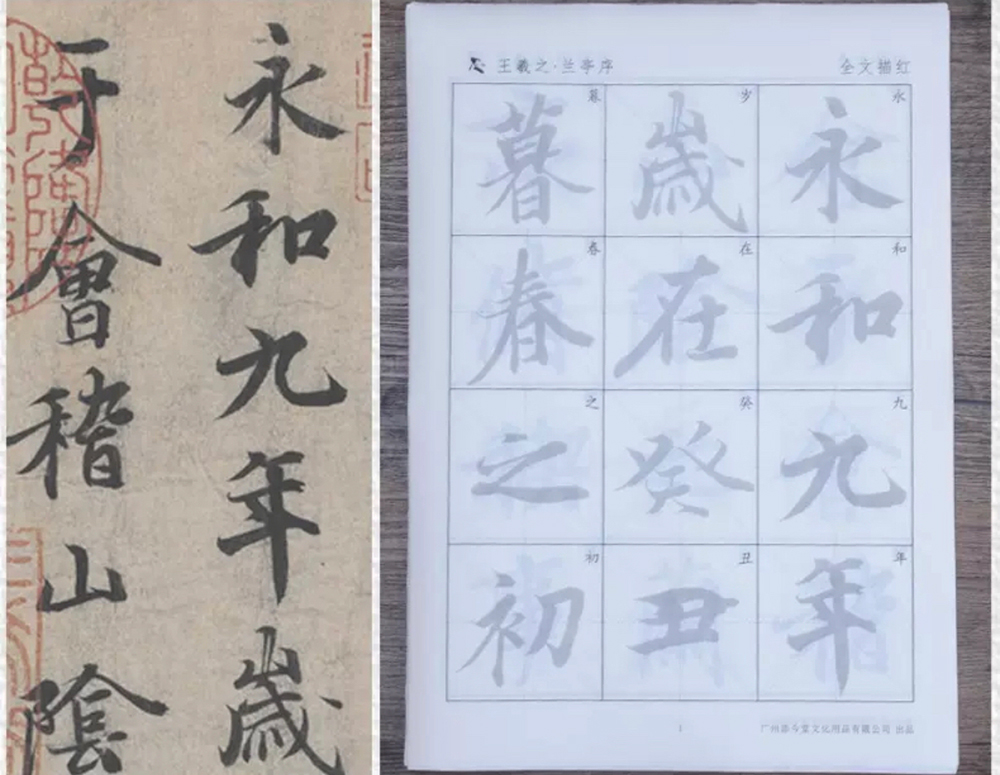 永和九年歲
于會稽山陰
王羲之·兰亭序
全文描红
永和九年
永和九年
岁在癸丑
歲在癸丑
暮春之初
暮春之初
1
文化用品有限公司 出品